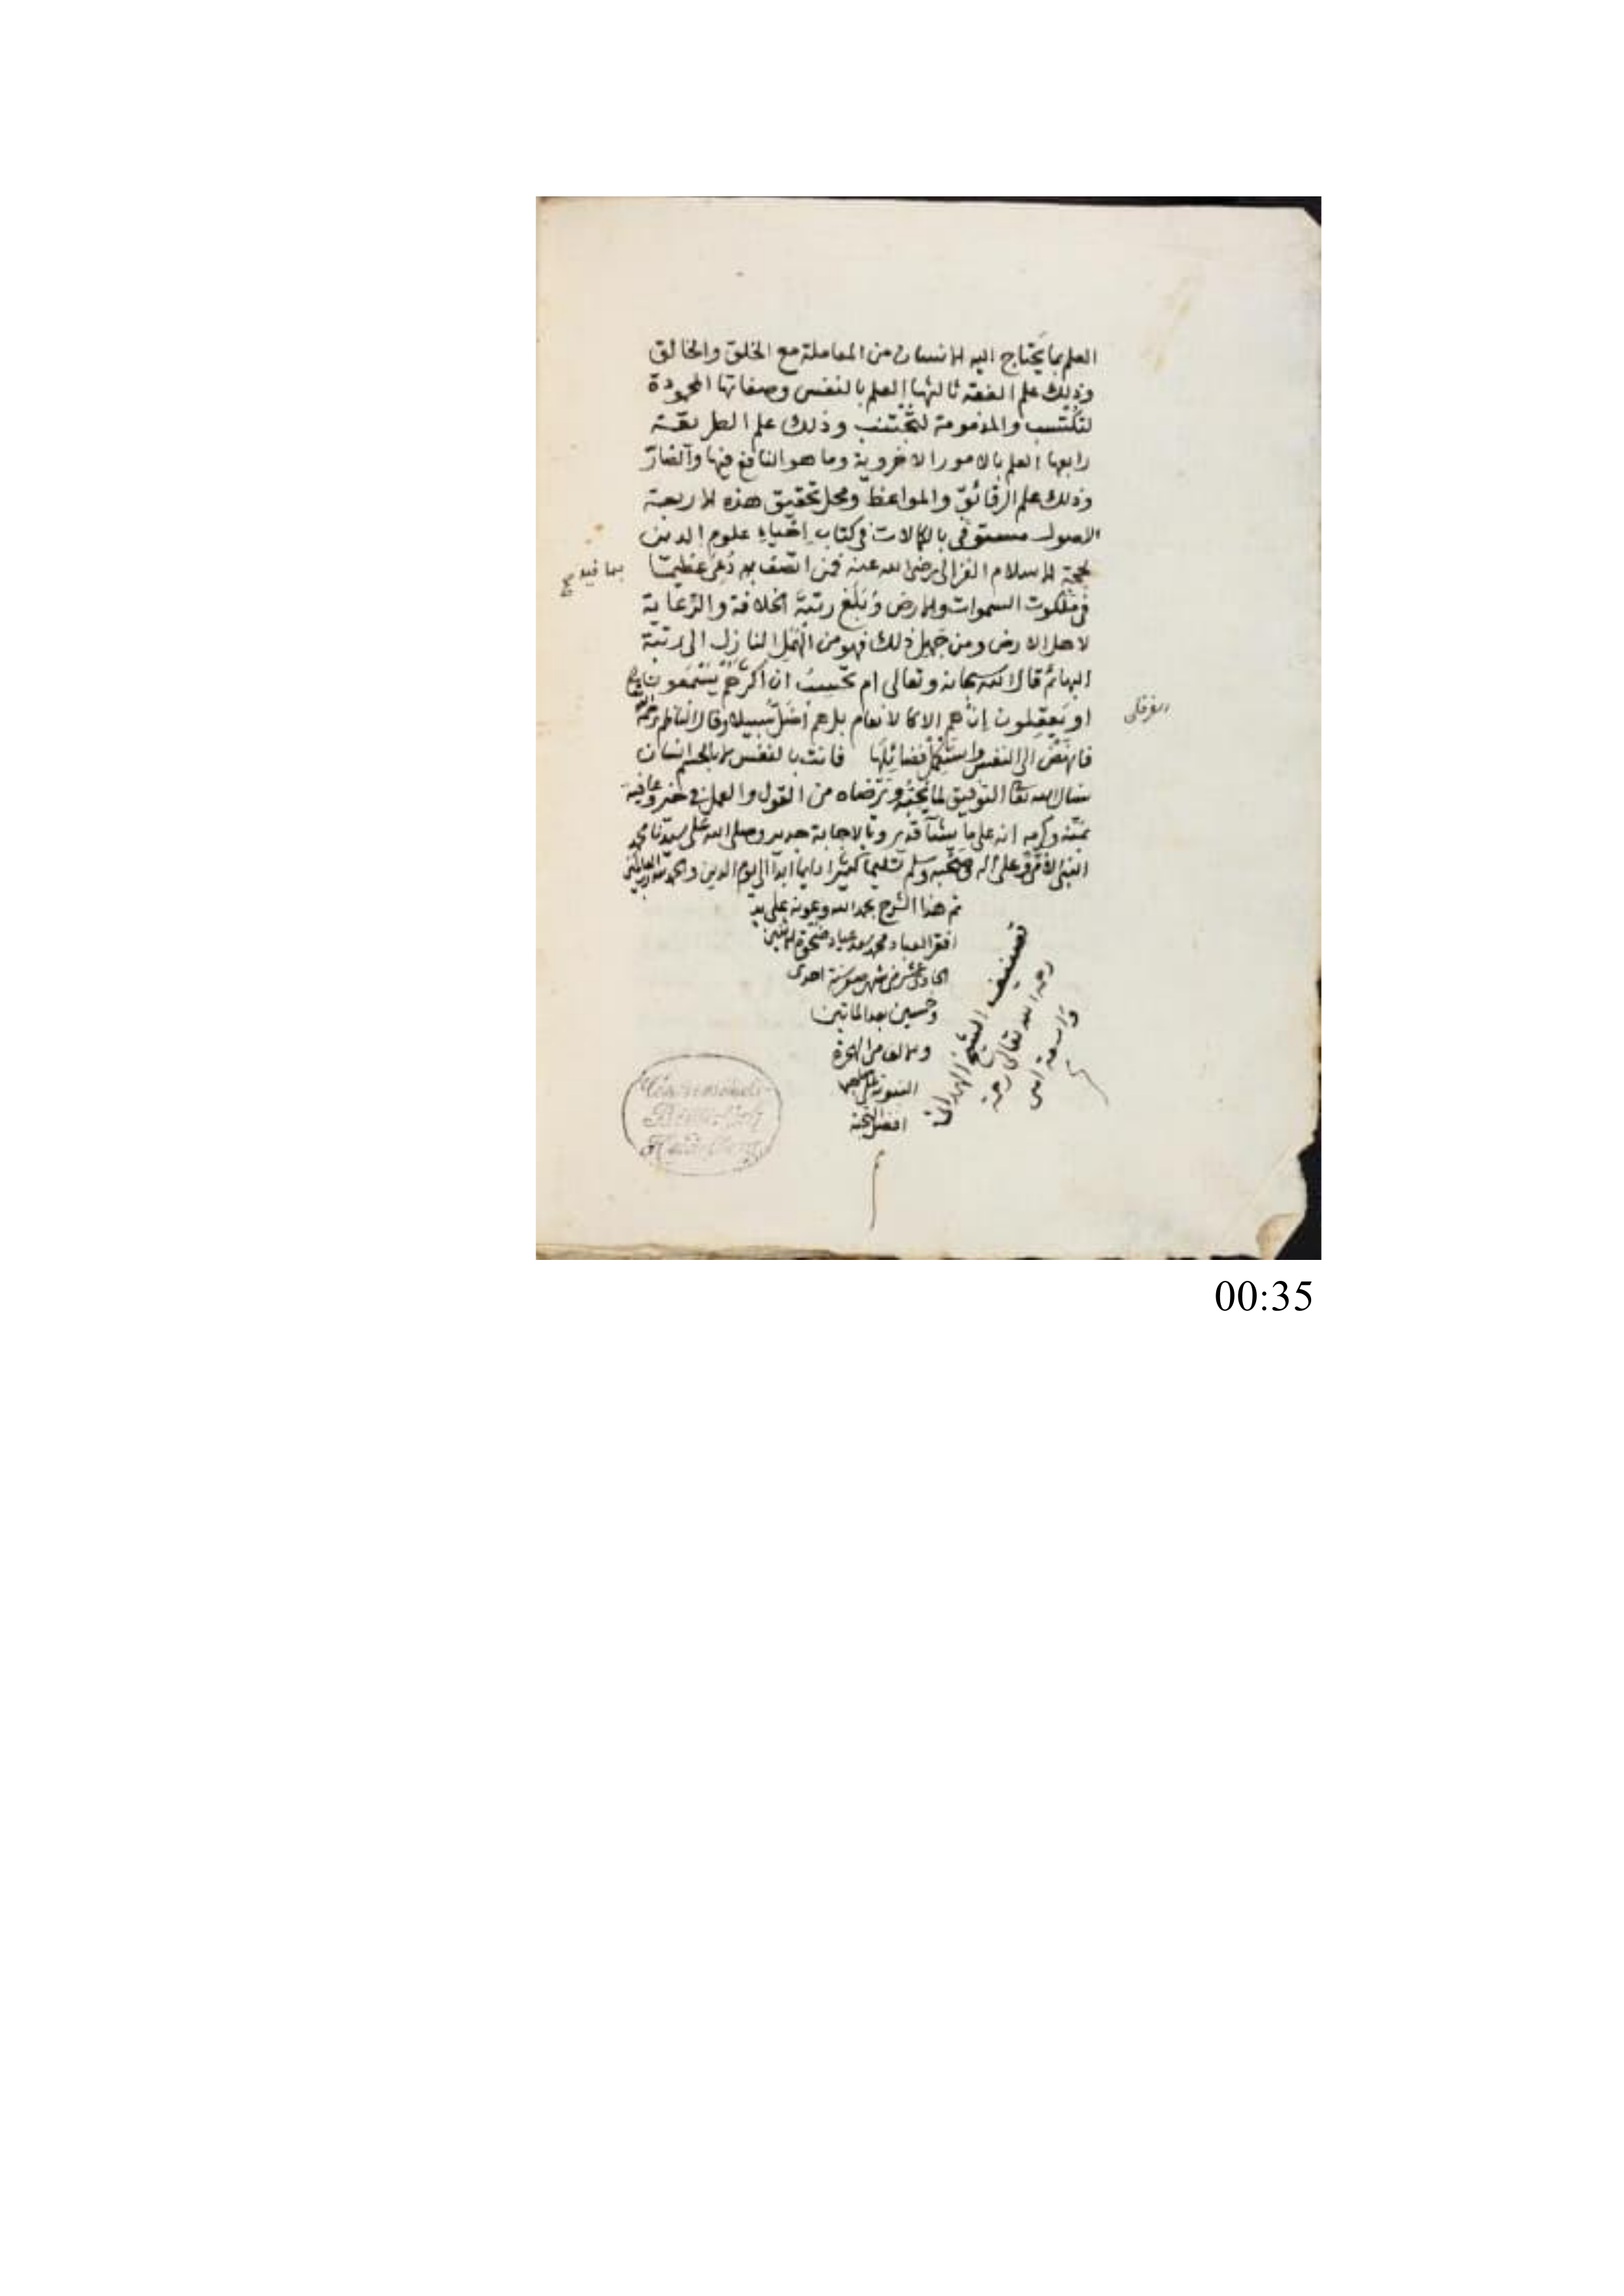 العلم بما يَحتاج اليه الانسان من المعاملة مع الخلق والخالق
وذلك علم الفقه ثالثها العلم بالنفس وصفاتها المحمودة
لتُكتسب والمذمومة لتُجتنب وذلك علم الطريقة
رابعها العلم بالامور الاخروية وما هو النافع فيها والضارّ
وذلك علم الرقائق والمواعظ ومحل تحقيق هذه الاربعة
الاصول مستوفى بالكمالات فى كتاب إحياء علوم الدين
لحجة الاسلام الغزالى رضى الله عنه فمن اتصف بها دُعى عظيمًا
بما فيه صح
فى ملكوت السموات والارض وبَلَغ رتبةَ الخلافة والرّعاية
لاهل الارض ومن جهل ذلك فهو من الهَمَل النازل الى رتبة
البهائم قال الله سبحانه وتعالى ام تحسبُ ان اكثرهم يَسْمَعون
او يَعقِلون إنْ هم الا كالانعام بل هم أضَلّ سبيلا وقال الناظم رحمه الله تعالى
فانهض الى النفس واستكمل فضائلها فانت بالنفس لا بالجسم انسان
نسال الله تعا التوفيق لما يُحبّه ويَرضاه من القول والعمل فى خير وعافية
بمنّه وكرمه انه على ما يشآ قدير وبالاجابة جدير وصلى الله على سيدنا محمد
النبى الامّى وعلى اله وصَحْبه وسلم تسليمًا كثيرًا دايمًا ابدًا الى يوم الدين والحمد لله رب العالمين
تم هذا الشرح بحمد الله وعونه على يد
افقر العباد محمد سعد عياد ضحوة الاثنين
الحادى عشر من شهر صفر سنة احدى
وخمسين بعد المائتين
والالف من الهجرة
النبوية على صاحبها
افضل التحية
تصنيف الشيخ
رحمه الله تعالى رحمة
واسعة امين
00:35